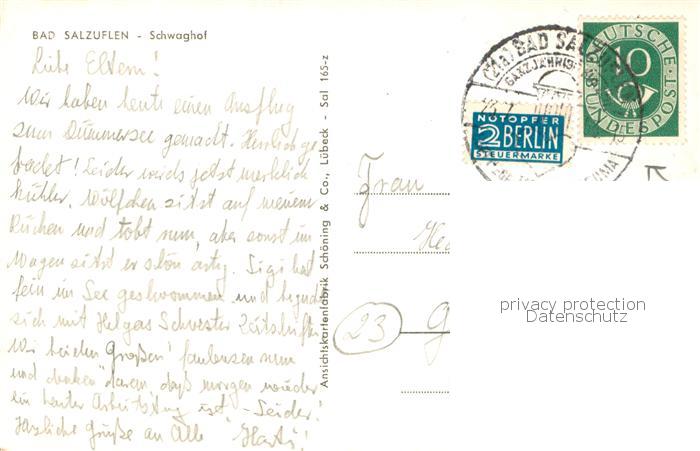 BAD SALZUFLEN - Schwaghof
Liebe Eltern!
Wir haben heute einen Ausflug
zum Dümmersee gemacht. Herrlich ge
badet! Leider wirds jetzt merklich
kühler. Wölfchen sitzt auf meinem
Rücken und tobt nun, aber sonst im
Wagen sitzt er schön artig. Sigi hat
fein im See geschwommen und
sich mit Helgas Schwester
Wir beiden "Großen" faulenzen nun
und denken daran, daß morgen wieder
ein harter Arbeitstag ist - Leider.
Herzliche Grüße an Alle
Ansichtskartenfabrik Schöning & Co., Lübeck - Sal 165-z
(21a) BAD SALZUFLEN
GANZJÄHRIG
NOTOPFER
2 BERLIN
STEUERMARKE
DEUTSCHE
10
BUNDESPOST
Frau
23
G
privacy protection
Datenschutz